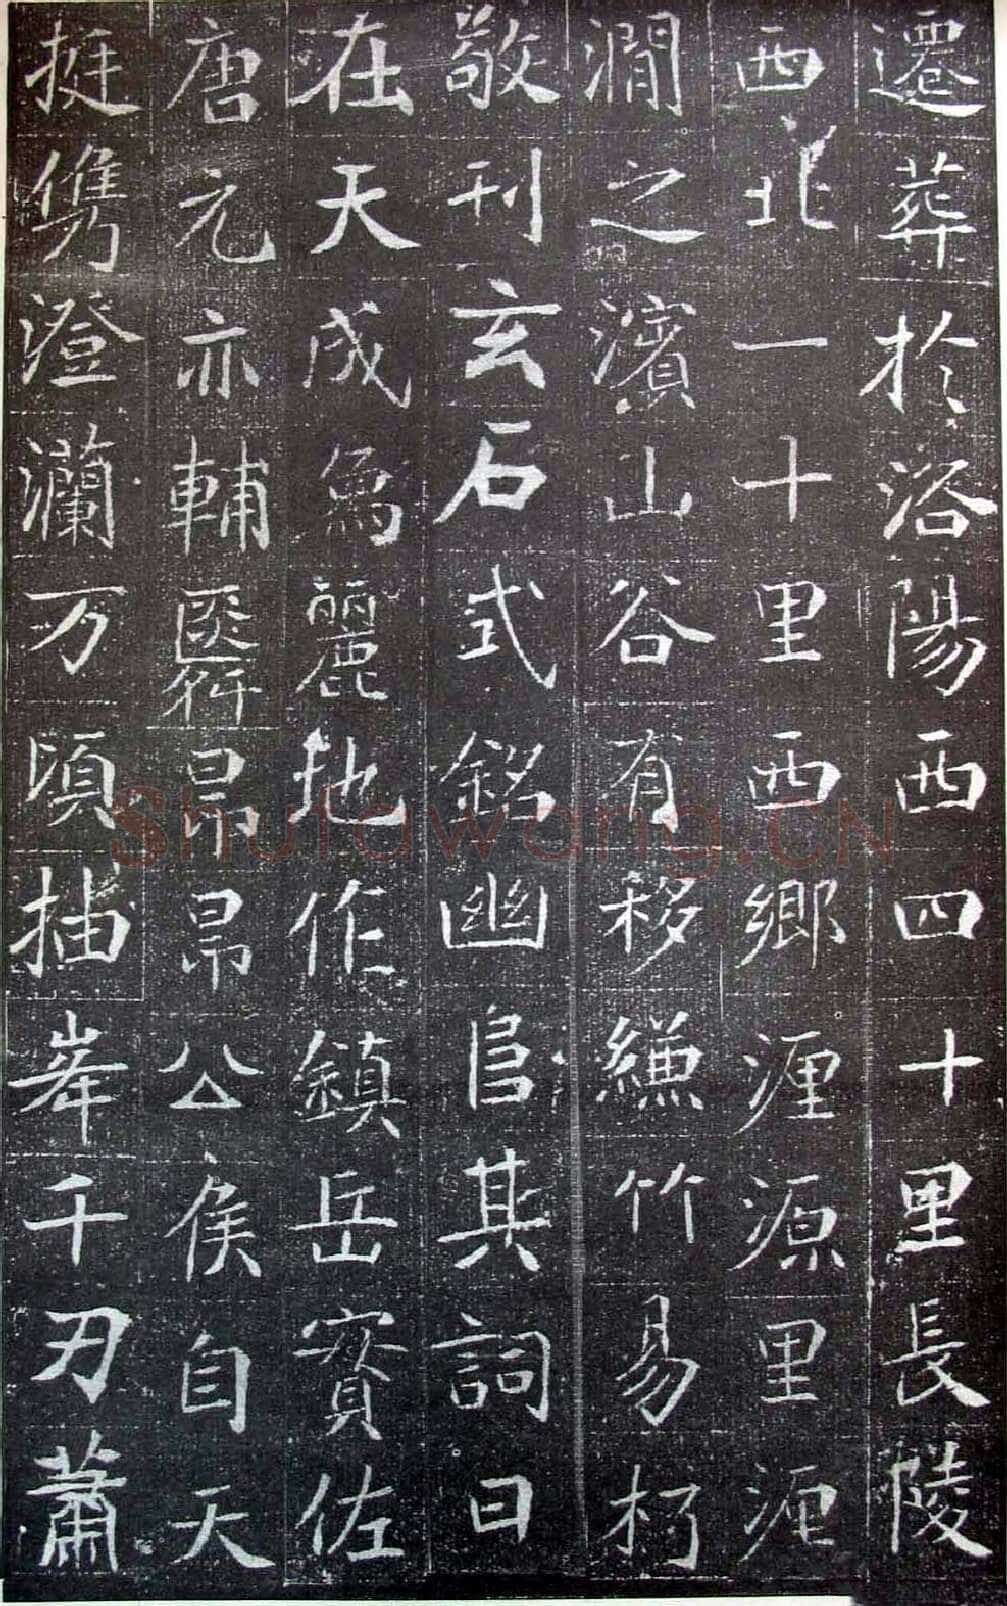 遷葬於洛陽西四十里長陵
西北一十里西鄉瀍源里瀍
澗之濱山谷有移縑竹易朽
敬刊玄石式銘幽扃其詞曰
在天成象麗地作鎮岳賓佐
唐元亦輔舜昂昂公侯自天
挺儁澄瀾万頃插峯千刃蕭
Shufawang.CN